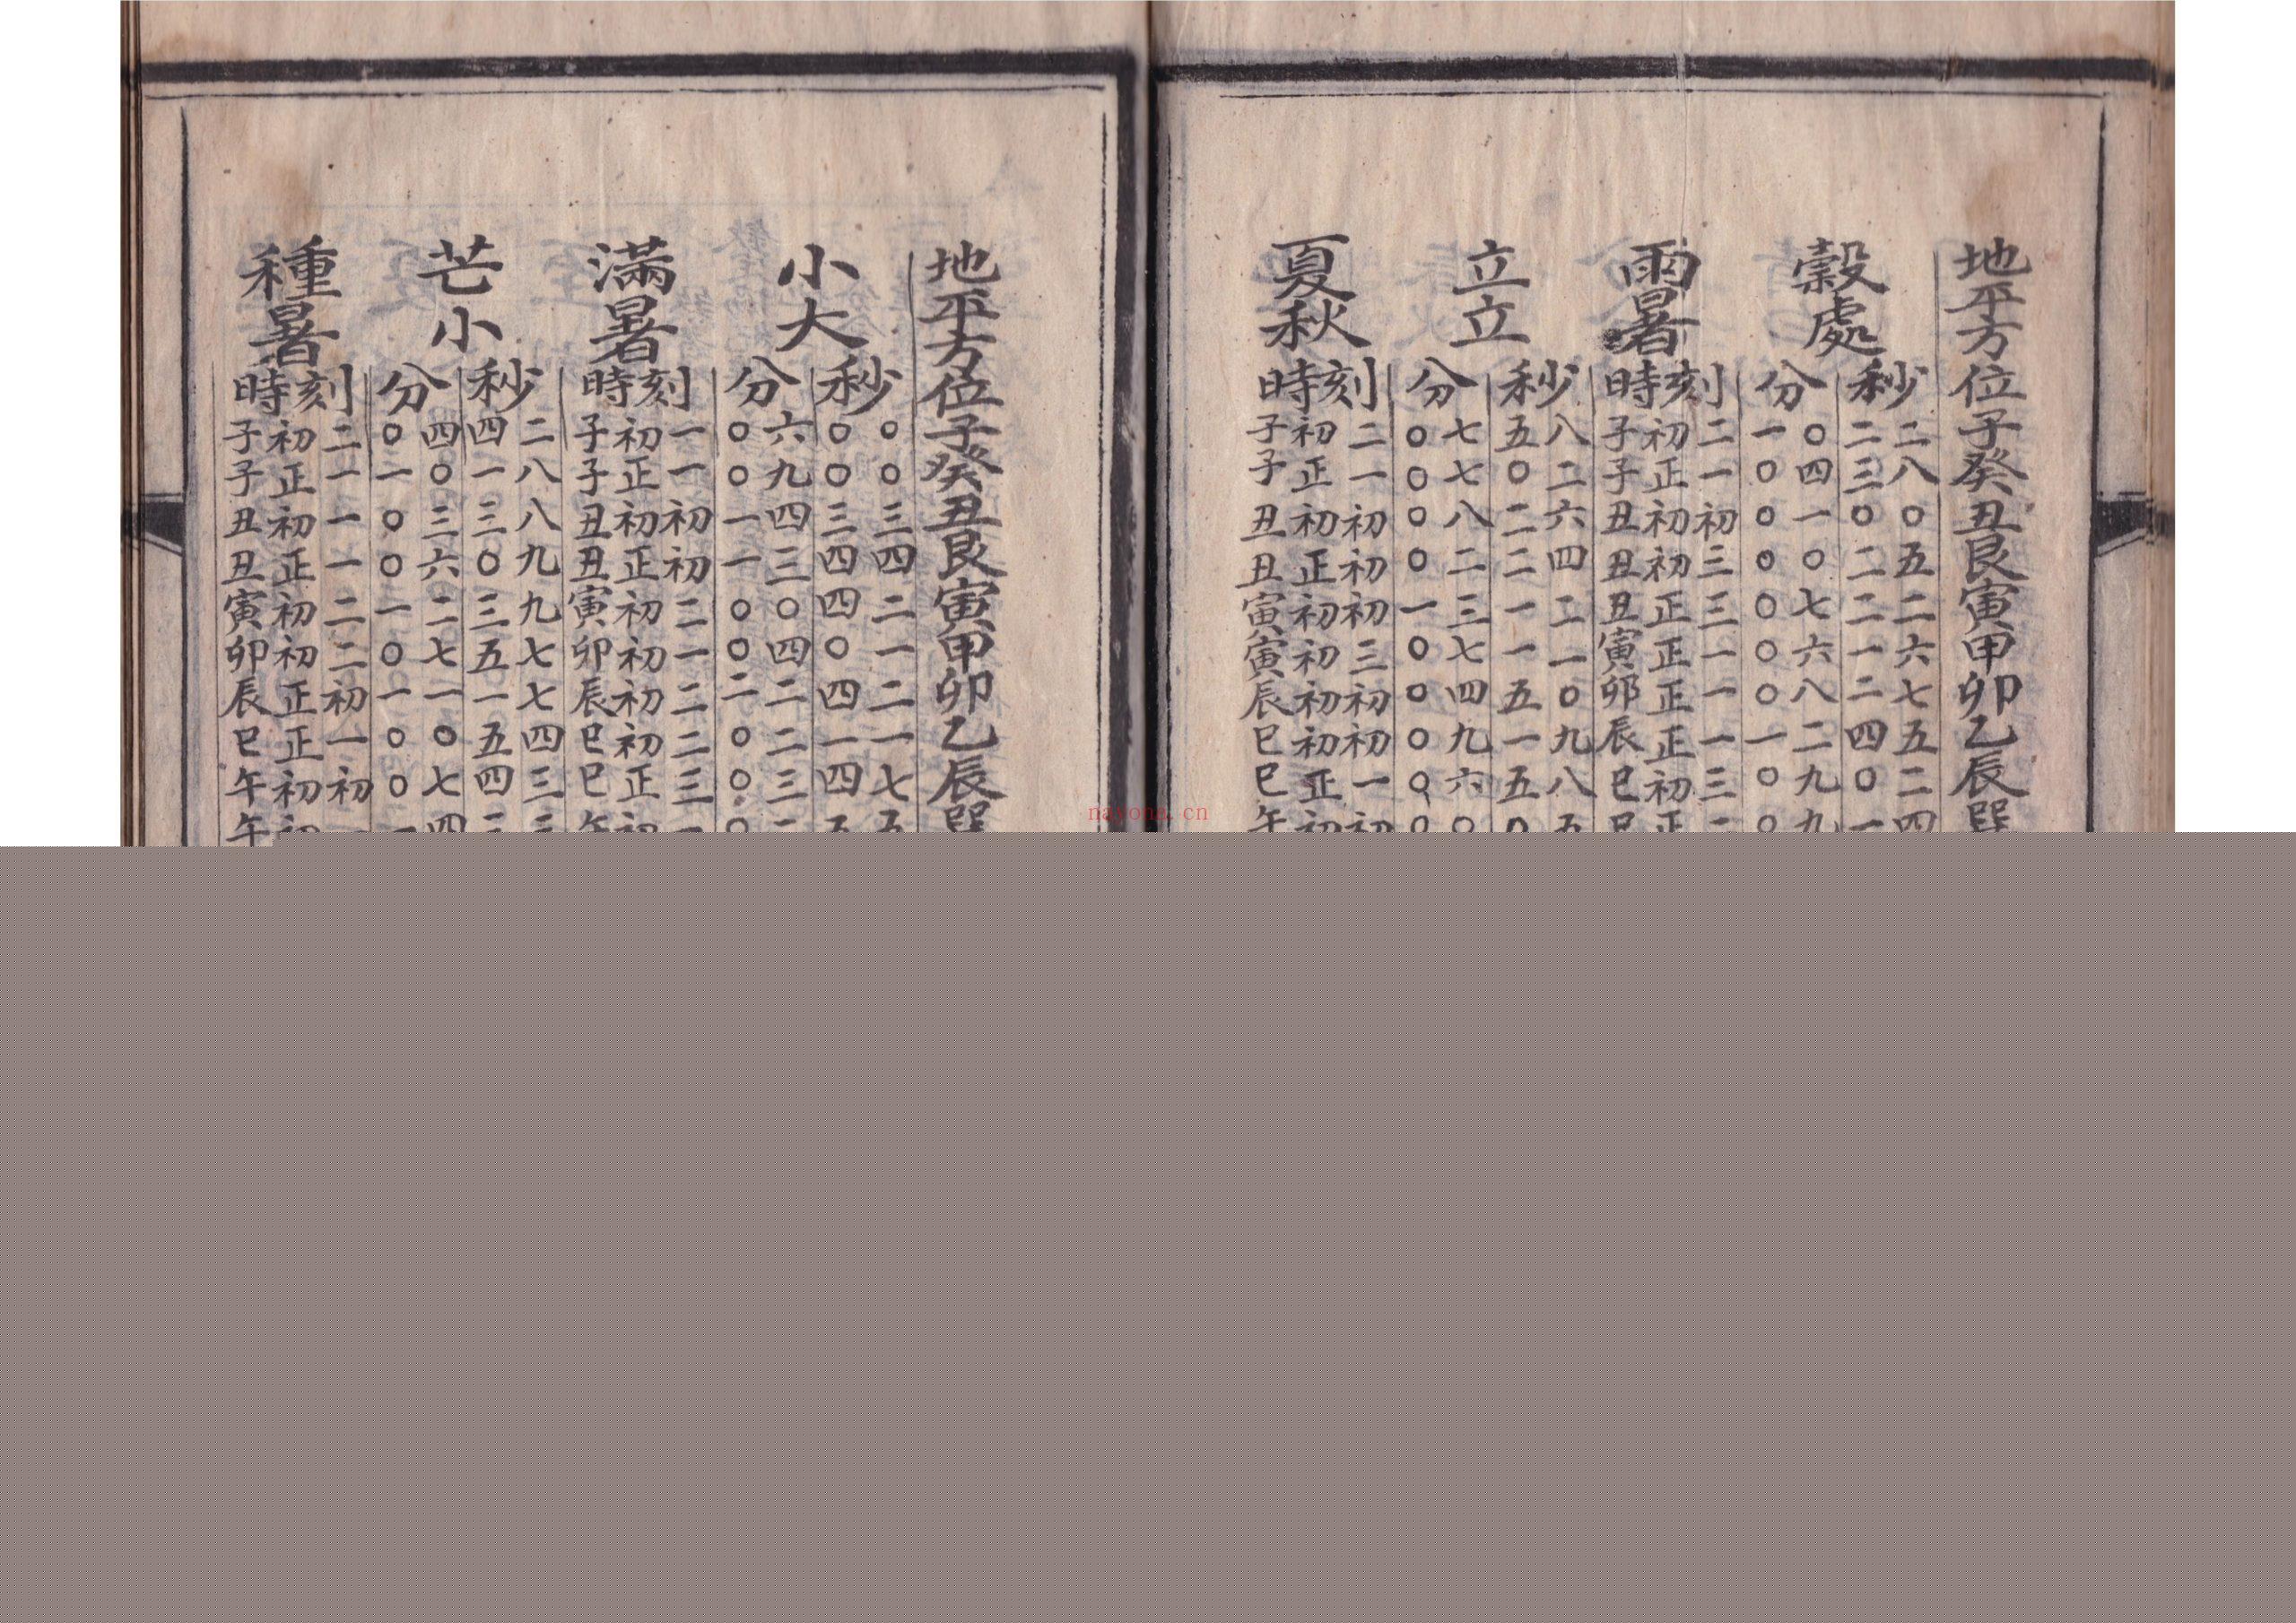 地平方位子癸丑艮寅甲卯乙辰巽
穀處秒二八〇五二六七五二四
二三〇二二一二四〇一
分〇四一〇七六八二九九
一〇〇〇〇〇〇一〇〇
雨暑時刻二一初三三一一一三二
初正初初正正正正初正
子子丑丑丑寅卯辰巳巳
立立秒八二六四二一〇九八五
五〇二二一一五一五〇
分七七八二三七四九六〇
〇〇〇〇一〇〇〇〇〇
夏秋時刻二一初初初三初初一初
初正初正初初初初正初
子子丑丑寅寅辰巳巳午
地平方位子癸丑艮寅甲卯乙辰巽
小大秒〇〇三四二一二一七五
〇〇三四四〇四一四五
分六九四三〇四二二三二
〇〇一一〇〇二〇〇〇
滿暑時刻一一初初二一二二三一
初正初正初初初初正初
子子丑丑寅卯辰巳巳午
芒小秒二八八九九七七四三三
四一三〇三五一五四二
分四〇三六二七一〇七四
〇一〇〇一〇一〇〇一
種暑時刻二一一一二二初一初一
初正初正初初正正初初
子子丑丑寅卯辰巳午午
nayona.cn